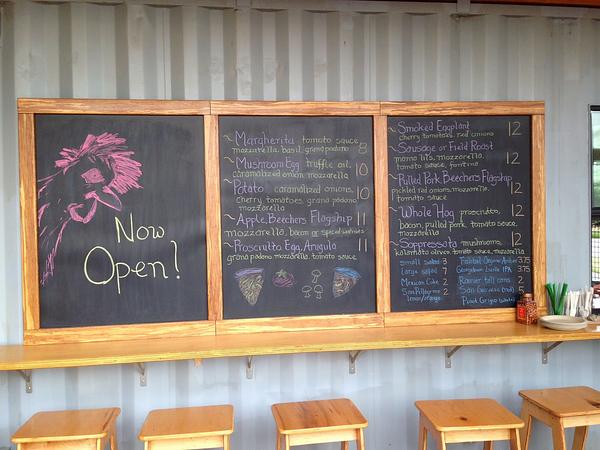 Now
Open!
~ Margherita tomato sauce,
mozzarella, basil, grana padano 8
~ Mushroom Egg truffle oil,
caramelized onion, mozzarella 10
~ Potato caramelized onions,
cherry tomatoes, grana padano,
mozzarella 10
~ Apple, Beechers Flagship
mozzarella, bacon or 11
~ Prosciutto, Egg, Arugula
grana padano mozzarella, tomato sauce 11
~ Smoked Eggplant
cherry tomatoes, red onions 12
~ Sausage or Field Roast
mama lils, mozzarella,
tomato sauce, fontina 12
~ Pulled Pork, Beechers Flagship
pickled red onions, mozzarella,
tomato sauce 12
~ Whole Hog prosciutto,
bacon, pulled pork, tomato sauce,
mozzarella 12
~ Soppressata mushrooms,
kalamata olives, tomato sauce 12
small salad 3
large salad 7
Mexican Coke 2
San Pellegrino 2
lemon/orange
Fishtail Organic Amber 3.75
Georgetown Lucille IPA 3.75
Rainier tall cans 2
San (red) 5
Pinot Grigio (white)